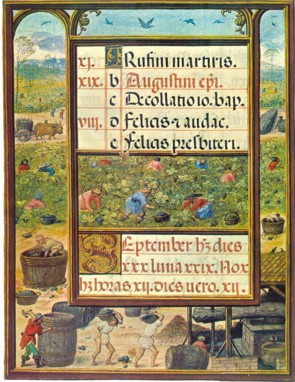 xj. A Rufini martiris.
xix. b Augustini epi.
c Decollatio io. bap.
viij. d Felicis ⁊ audac.
e Felicis presbiteri.
September hz dies
xxx luna xxix. Nox
hz horas xij. dies uero. xij.